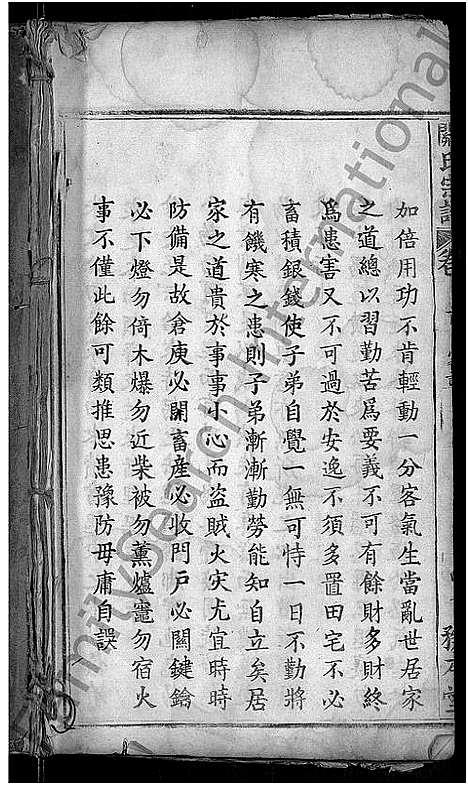 加倍用功不肯輕動一分客氣生當亂世居家
之道總以習勤苦爲要義不可有餘財多財終
爲患害又不可過於安逸不須多置田宅不必
畜積銀錢使子弟自覺一無可恃一日不勤將
有饑寒之患則子弟漸漸勤勞能知自立矣居
家之道貴於事事小心而盜賊火灾尤宜時時
防備是故倉庾必關畜産必收門戶必關鍵鑰
必下燈勿倚木爆勿近柴被勿薰爐竈勿宿火
事不僅此餘可類推思患豫防毋庸自誤
FamilySearch International